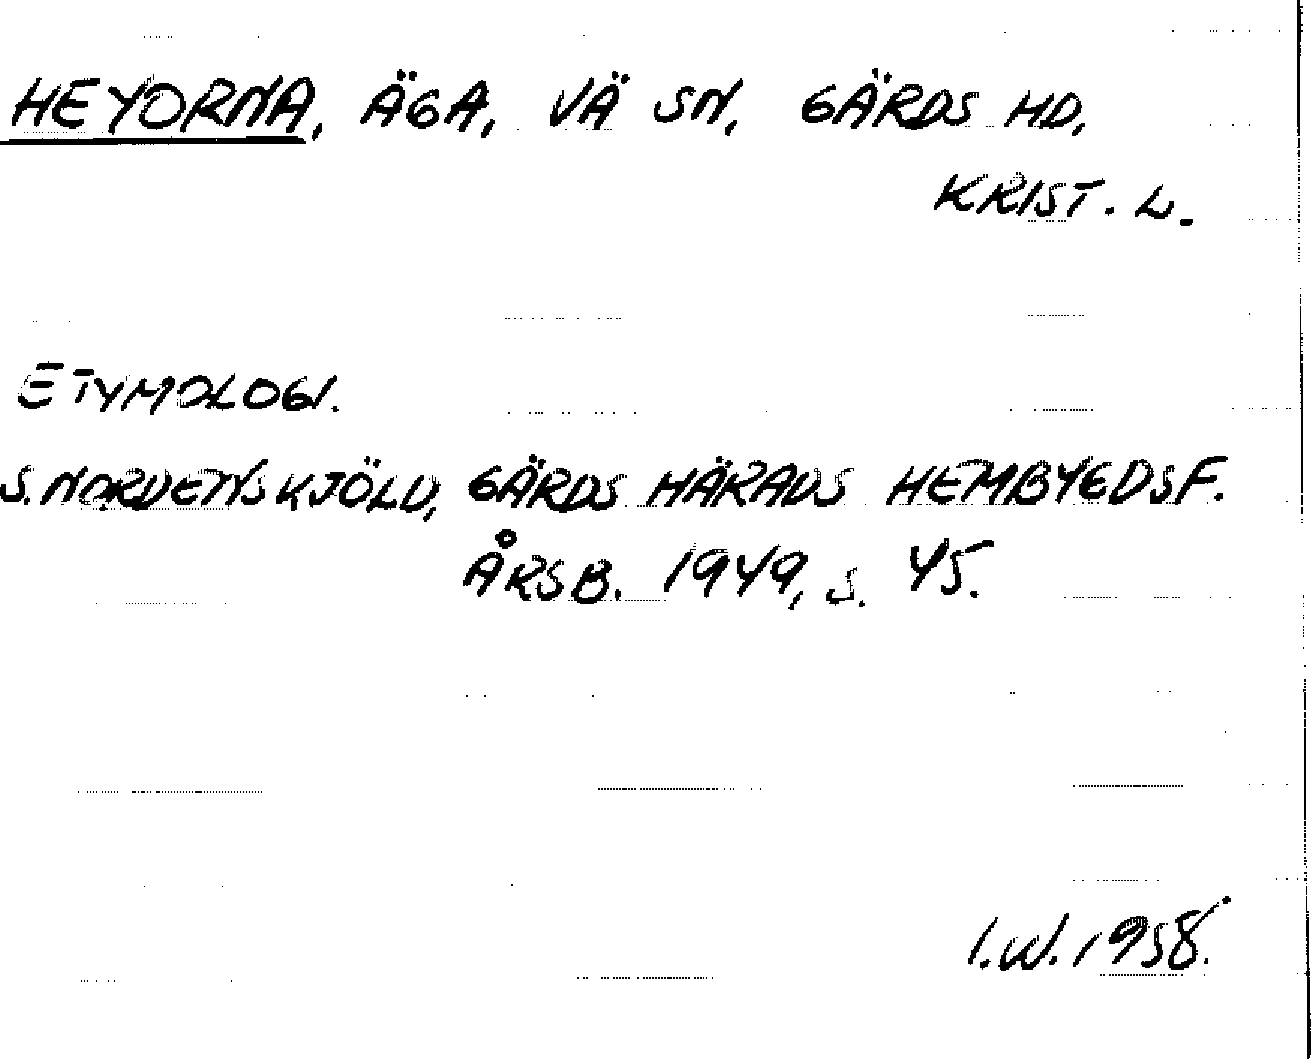 HEYORNA, ÄGA, VÄ SN, GÄRDS HD,
KRIST. L.
ETYMOLOGI.
S. NORDENSKJÖLD, GÄRDS HÄRADS HEMBYGDSF.
ÅRSB. 1949, S. 45.
I.W. 1958.